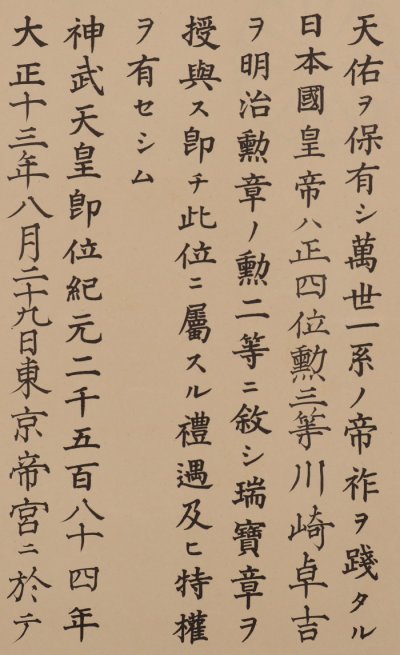 天佑ヲ保有シ萬世一系ノ帝祚ヲ踐タル
日本國皇帝ハ正四位勲三等川崎卓吉
ヲ明治勲章ノ勲二等ニ敘シ瑞寶章ヲ
授與ス卽チ此位ニ屬スル禮遇及ヒ特權
ヲ有セシム
神武天皇卽位紀元二千五百八十四年
大正十三年八月二十九日東京帝宮ニ於テ